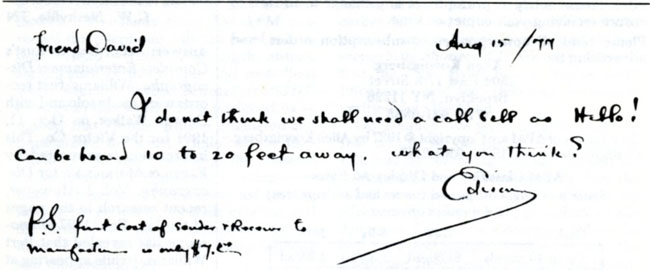 Friend David Aug 15/77
I do not think we shall need a call bell as Hello!
can be heard 10 to 20 feet away. what you think?
Edison
P.S. first cost of sender & Receiver to
manufacture is only $7.00